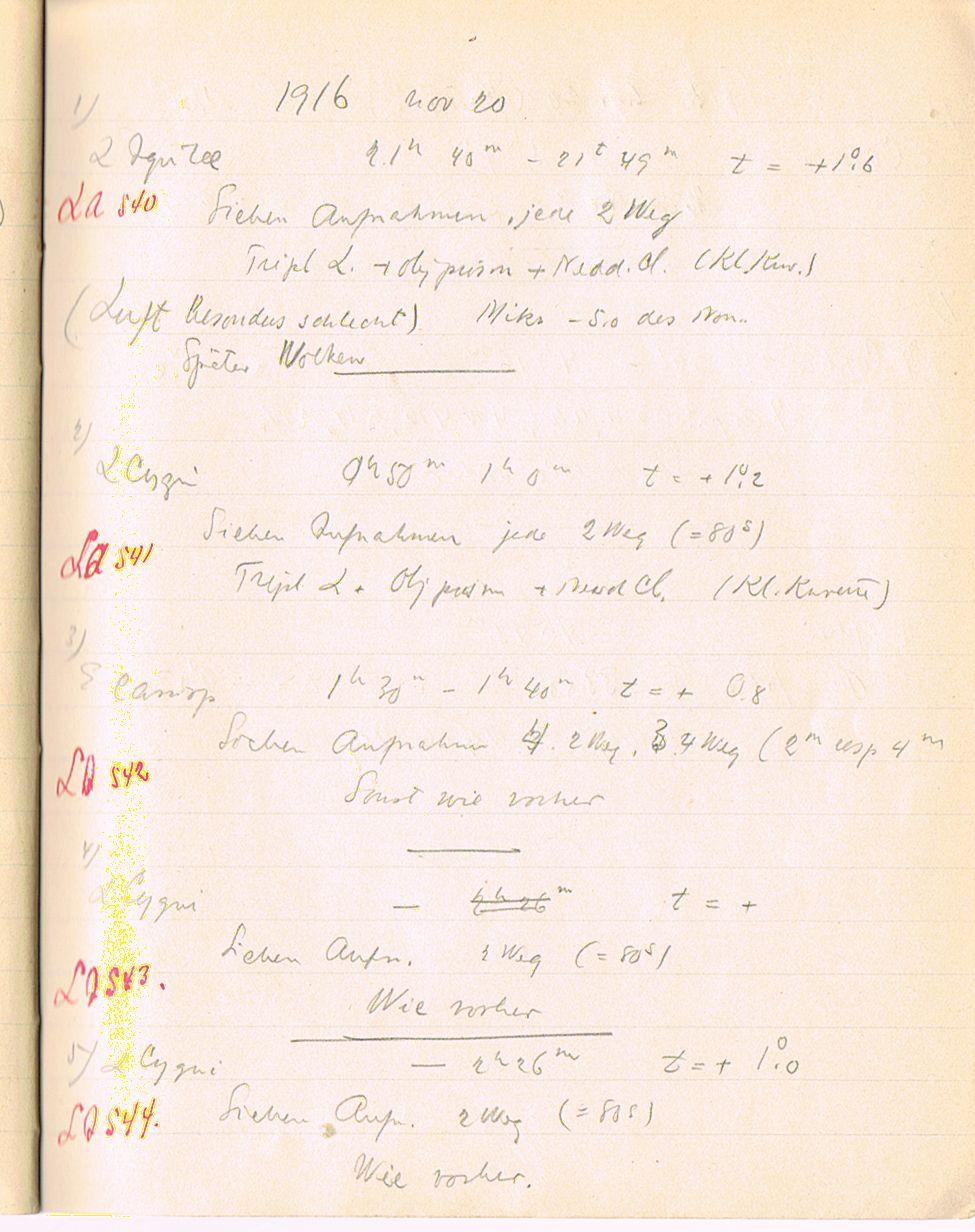 1) 1916 nov 20
α Aquilae 21h 40m - 21h 49m t = +1°.6
La 540 Sieben Aufnahmen, jede 2 Weg
Tripl α. + Objprism + Nedd. Cl. (Kl. Kuv.)
(Luft besonders schlecht) Mikr - 5.0 des
Später Wolken
2)
α Cygni 0h 50m 1h 0m t = +1°.2
La 541 Sieben Aufnahmen jede 2 Weg (=80s)
Tripl α + Objprism + Nedd Cl. (Kl. Kuvette)
3)
ε Cassiop 1h 30m - 1h 40m t = + 0.8
La 542 Sieben Aufnahmen 4. 2 Weg, 3 4 Weg (2m resp 4m
Sonst wie vorher
4)
α Cygni — 2h 26m t = +
La 543. Sieben Aufn. 2 Weg (=80s)
Wie vorher
5) α Cygni — 2h 26m t = + 1°.0
La 544. Sieben Aufn. 2 Weg (=80s)
Wie vorher.